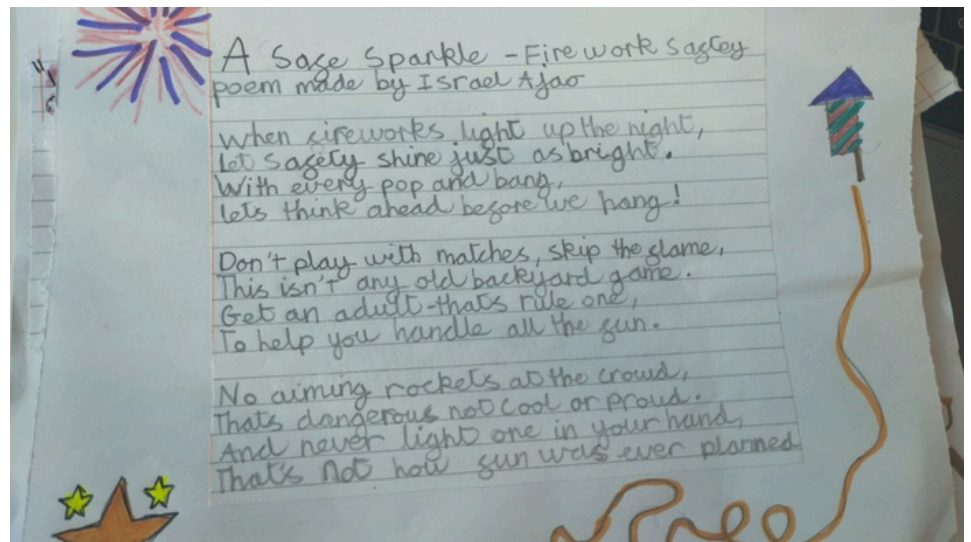 A Safe Sparkle - Firework Safety
poem made by Israel Ajao
When fireworks light up the night,
let safety shine just as bright.
With every pop and bang,
lets think ahead before we hang!
Don't play with matches, skip the flame,
This isn't any old backyard game.
Get an adult-thats rule one,
To help you handle all the fun.
No aiming rockets at the crowd,
Thats dangerous not cool or proud.
And never light one in your hand,
That's not how fun was ever planned